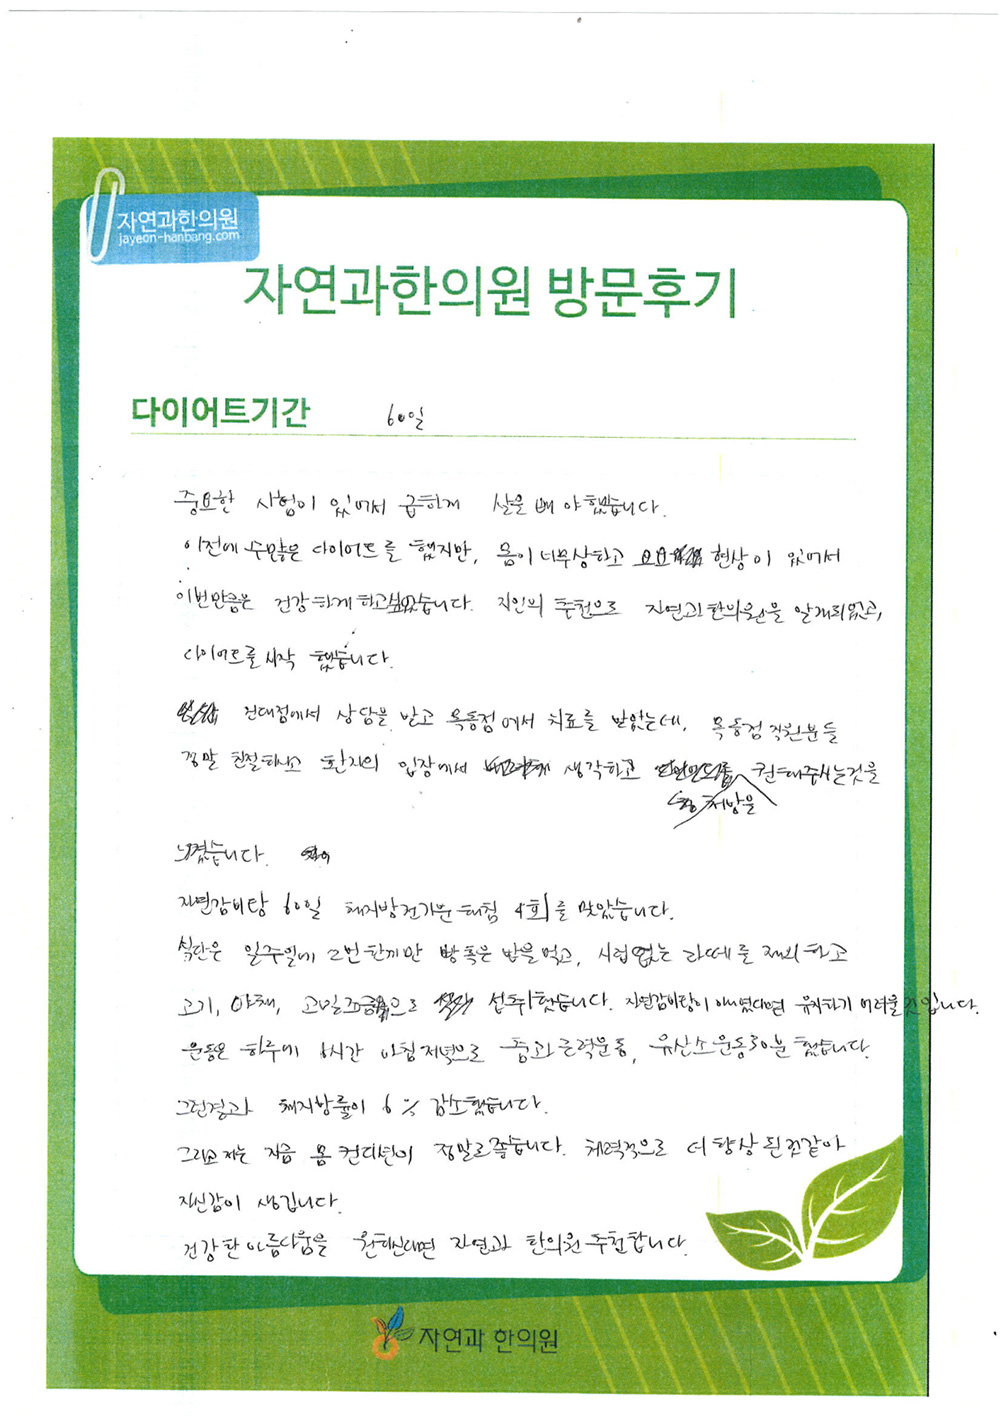 자연과한의원
jayeon-hanbang.com
자연과한의원 방문후기
다이어트기간 60일
중요한 시험이 있어서 급하게 살을 빼야했습니다.
이전에 수많은 다이어트를 했지만, 몸이 너무상하고 요요 현상이 있어서
이번만큼은 건강하게 하고싶었습니다. 지인의 추천으로 자연과한의원을 알게되었고,
다이어트를 시작 했습니다.
건대점에서 상담을 받고 목동점에서 치료를 받았는데, 목동점 직원분들
정말 친절하시고 환자의 입장에서 생각하고 권해주시는것을
처방을
느꼈습니다.
자연감비탕 60일 체지방 4회를 맞았습니다.
식단은 일주일에 2번 한끼만 밥을먹고, 시럽없는 라떼를 제외하고
고기, 야채, 고밀 으로 섭취했습니다. 자연감비탕이 아니였다면 유지하기 어려울것입니다.
운동은 하루에 1시간 아침저녁으로 근력운동, 유산소운동30분 했습니다.
그런결과 체지방률이 6% 감소했습니다.
그리고 저는 지금 몸 컨디션이 정말로좋습니다. 체력적으로 더 향상된것같아
자신감이 생깁니다.
건강한 아름다움을 원하신다면 자연과 한의원 추천합니다.
자연과 한의원